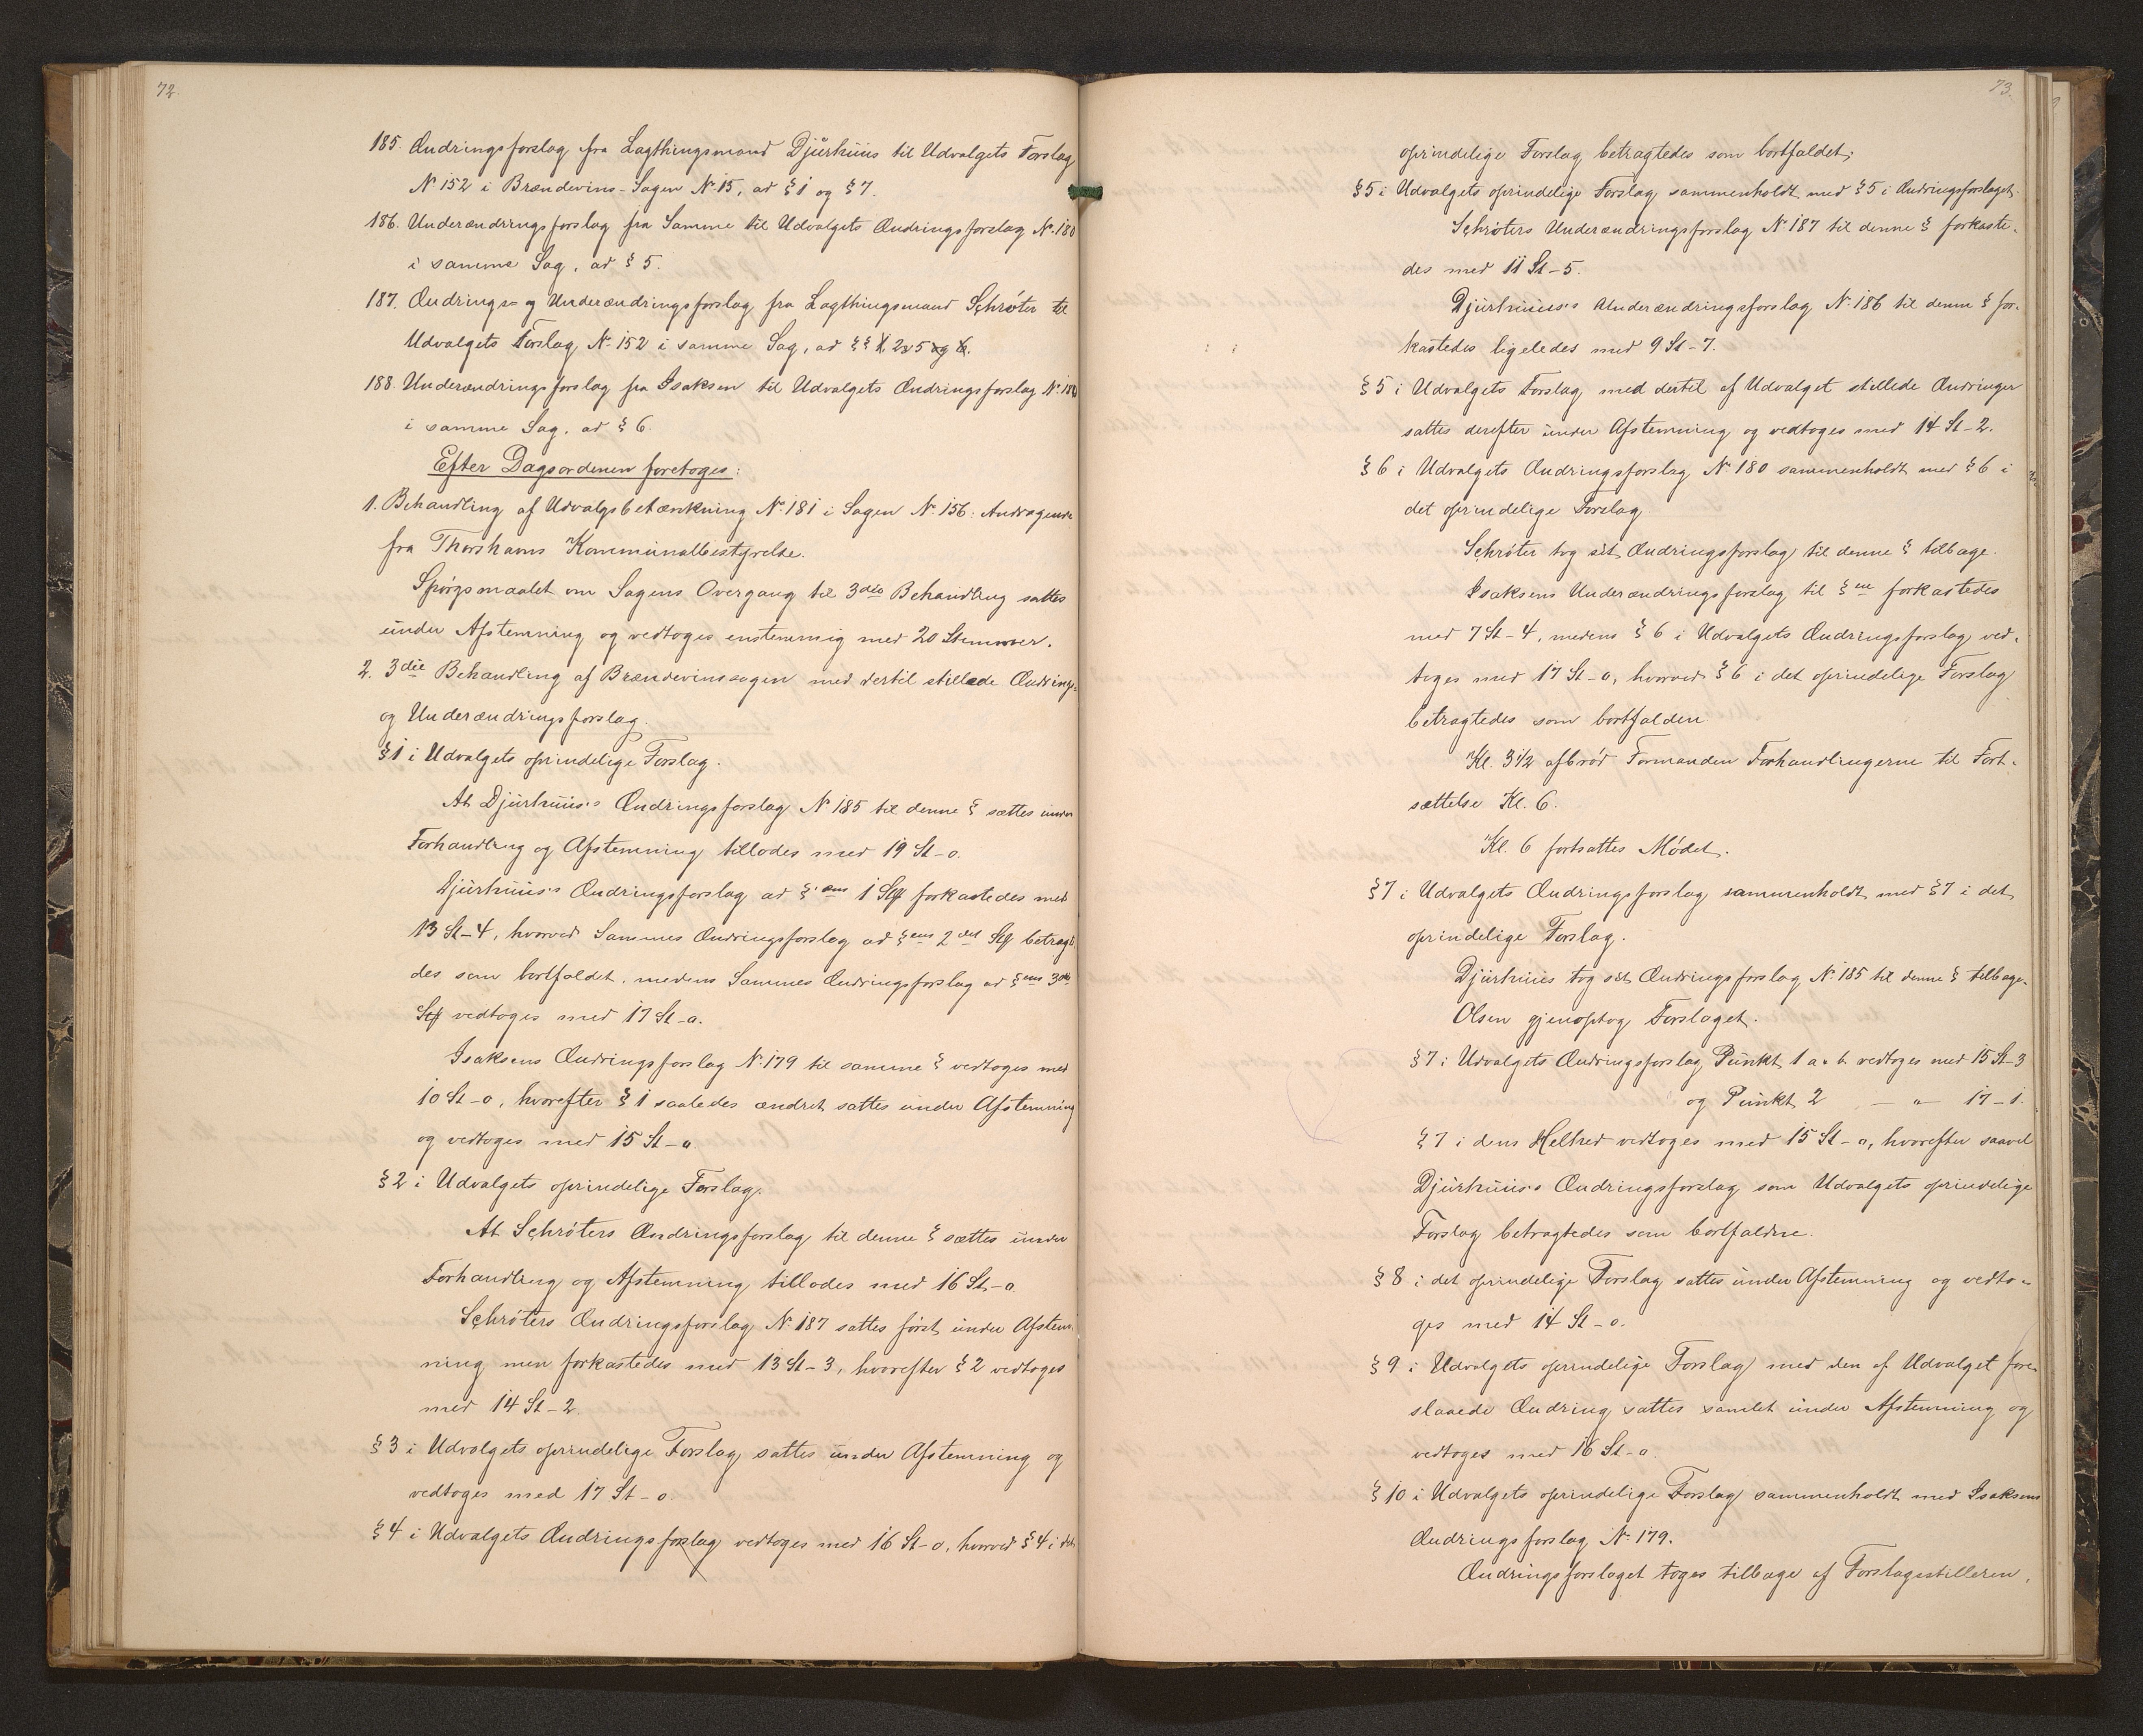 72.
185. Ændringsforslag fra Lagthingsmand Djürhüus til Udvalgets Forslag
N. 152 i Brændevins-Sagen N. 15, ad § 1 og § 7.
186. Underændringsforslag fra Samme til Udvalgets Ændringsforslag N. 180
i samme Sag, ad § 5.
187. Ændrings- og Underændringsforslag fra Lagthingsmand Schröter til
Udvalgets Forslag N. 152 i samme Sag, ad §§ 1, 2, 5 og 6.
188. Underændringsforslag fra Isaksen til Udvalgets Ændringsforslag N. 180
i samme Sag, ad § 6.
Efter Dagsordenen foretoges:
1. Behandling af Udvalgsbetænkning N. 181 i Sagen N. 156: Andragende
fra Thorshavns Kommünalbestyrelse.
Spörgsmaalet om Sagens Overgang til 3die Behandling sattes
ünder Afstemning og vedtoges enstemmig med 20 Stemmer.
2. 3die Behandling af Brændevinssagen med dertil stillede Ændrings-
og Underændringsforslag.
§ 1 i Udvalgets oprindelige Forslag.
At Djürhüus's Ændringsforslag N. 185 til denne § sættes ünder
Forhandling og Afstemning tillodes med 19 St-0.
Djürhüus's Ændringsforslag ad §'ens 1 Stk forkastedes med
13 St-4, hvorved Sammes Ændringsforslag ad §ens 2det Stk betragte-
des som bortfaldet, medens Sammes Ændringsforslag ad §ens 3die
Stk vedtoges med 17 St-0.
Isaksens Ændringsforslag N. 179 til samme § vedtoges med
10 St-0, hvorefter § 1 saaledes ændret sattes ünder Afstemning
og vedtoges med 15 St-0.
§ 2 i Udvalgets oprindelige Forslag.
At Schröters Ændringsforslag til denne § sættes ünder
Forhandling og Afstemning tillodes med 16 St-0.
Schröters Ændringsforslag N. 187 sattes först ünder Afstem-
ning men forkastedes med 13 St-3, hvorefter § 2 vedtoges
med 14 St-2.
§ 3 i Udvalgets oprindelige Forslag sattes ünder Afstemning og
vedtoges med 17 St-0.
§ 4 i Udvalgets Ændringsforslag vedtoges med 16 St-0, hvorved § 4 i det
73.
oprindelige Forslag betragtedes som bortfaldet;
§ 5 i Udvalgets oprindelige Forslag sammenholdt med § 5 i Ændringsforslaget.
Schröters Underændringsforslag N. 187 til denne § forkaste-
des med 11 St-5.
Djürhüus's Underændringsforslag N. 186 til denne § for-
kastedes ligeledes med 9 St-7.
§ 5 i Udvalgets Forslag med dertil af Udvalget stillede Ændringer
sattes derefter ünder Afstemning og vedtoges med 14 St-2.
§ 6 i Udvalgets Ændringsforslag N. 180 sammenholdt med § 6 i
det oprindelige Forslag
Schröter tog sit Ændringsforslag til denne § tilbage.
Isaksens Underændringsforslag til §en forkastedes
med 7 St-4, medens § 6 i Udvalgets Ændringsforslag ved-
toges med 17 St-0, hvorved § 6 i det oprindelige Forslag
betragtedes som bortfalden.
Kl. 3 1/2 afbröd Formanden Forhandlingerne til Fort-
sættelse Kl. 6.
Kl. 6 fortsattes Mödet.
§ 7 i Udvalgets Ændringsforslag sammenholdt med § 7 i det
oprindelige Forslag.
Djürhüus tog sit Ændringsforslag N. 185 til denne § tilbage.
Olsen gjenoptog Forslaget.
§ 7 i Udvalgets Ændringsforslag Pünkt 1 a. b. vedtoges med 15 St-3
og Pünkt 2 — " — 17-1.
§ 7 i dens Helhed vedtoges med 15 St-0, hvorefter saavel
Djürhüus's Ændringsforslag som Udvalgets oprindelige
Forslag betragtedes som bortfaldne.
§ 8 i det oprindelige Forslag sattes ünder Afstemning og vedto-
ges med 14 St-0.
§ 9 i Udvalgets oprindelige Forslag med den af Udvalget fore-
slaaede Ændring sattes samlet ünder Afstemning og
vedtoges med 16 St-0.
§ 10 i Udvalgets oprindelige Forslag sammenholdt med Isaksens
Ændringsforslag N. 179.
Ændringsforslaget toges tilbage af Forslagsstilleren,